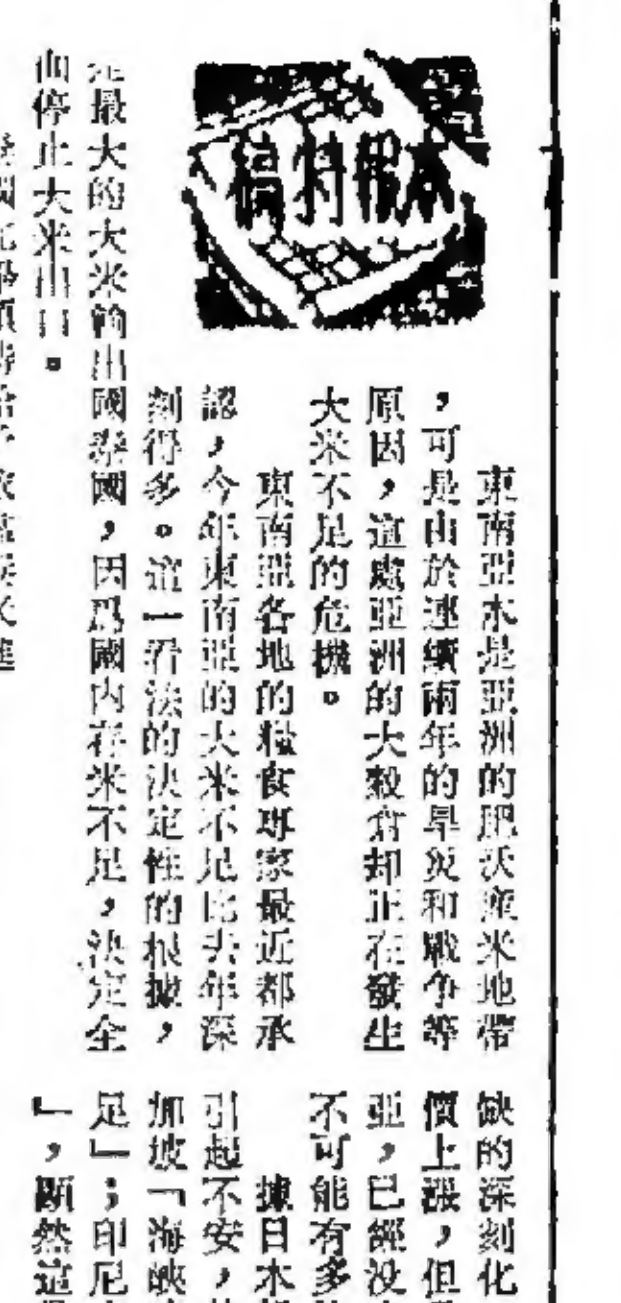 本報特稿
東南亞本是亞洲的肥沃産米地帶
，可是由於連續兩年的旱災和戰争等
原因，這處亞洲的大穀倉却正在發生
大米不足的危機。
東南亞各地的糧食專家最近都承
認，今年東南亞的大米不足比去年深
刻得多。這一看法的決定性的根據，
是最大的大米輸出國泰國，因爲國内存米不足，決定全
面停止大米出口。
缺的深刻化
價上漲，但
亞，已經没
不可能有多
據日本
引起不安，
加坡「海峽
足」；印尼
」，顯然這